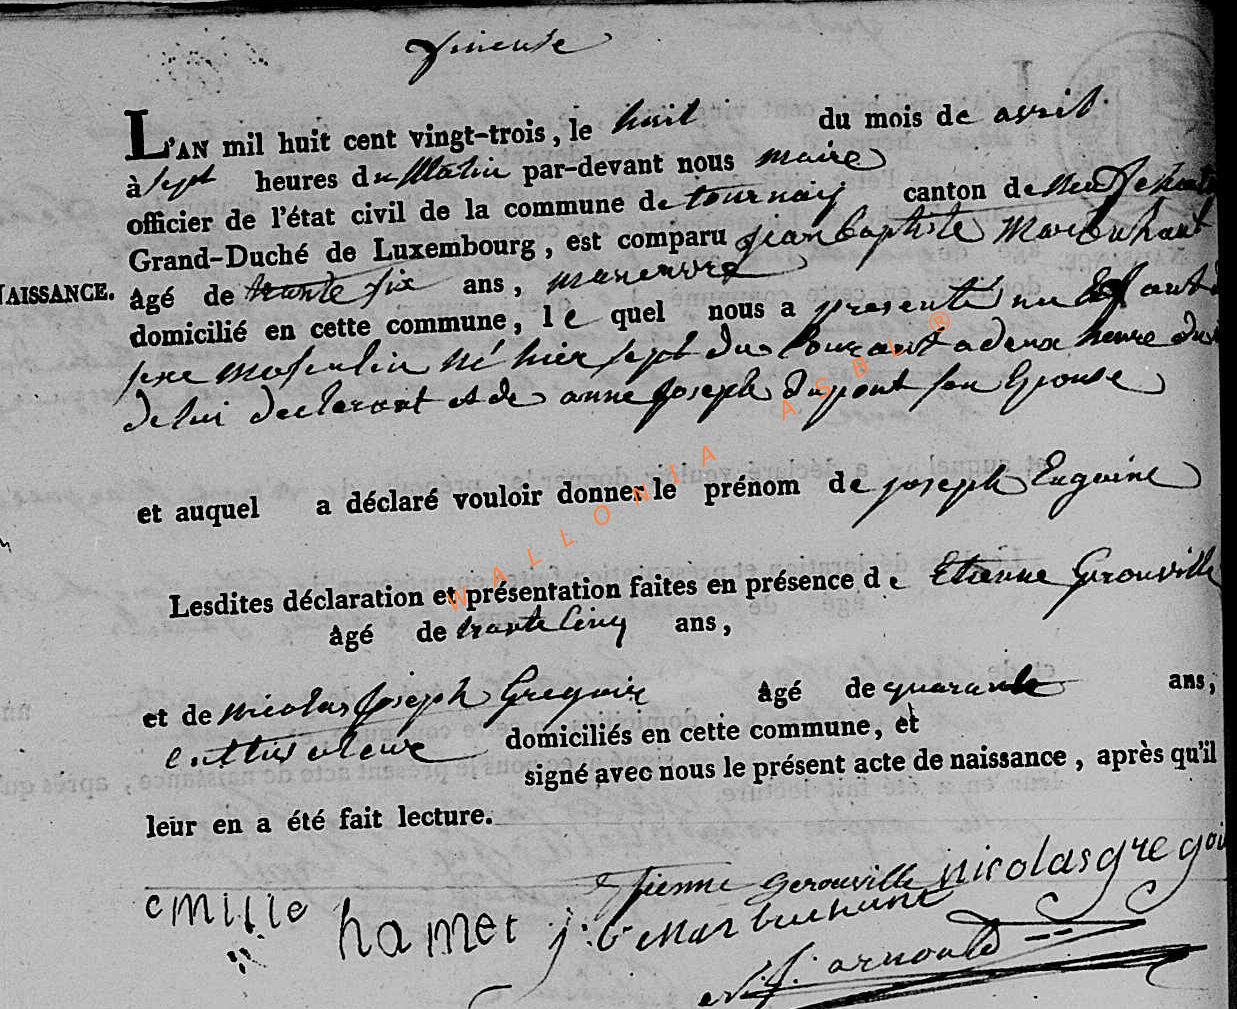 L'AN mil huit cent vingt-trois, le huit du mois de avril
à sept heures du Matin par-devant nous maire
officier de l'état civil de la commune de tournay canton de
Grand-Duché de Luxembourg, est comparu jean baptiste
NAISSANCE. âgé de trante six ans, manenvre
domicilié en cette commune, le quel nous a presenté un
sexe masculin né hier sept du courant a deux heure du
de lui declarant et de anne joseph Dupont son Epouse
et auquel a déclaré vouloir donner le prénom de joseph Eugoine
Lesdites déclaration et présentation faites en présence de Etienne Gerouville
âgé de trante cinq ans,
et de nicolas joseph Gregoire âgé de quarante ans,
domiciliés en cette commune, et
signé avec nous le présent acte de naissance, après qu'il
leur en a été fait lecture.
etienne gerouville nicolas gregoi
emilie hamer j: b
arnould
WALLONIA ASBL ®